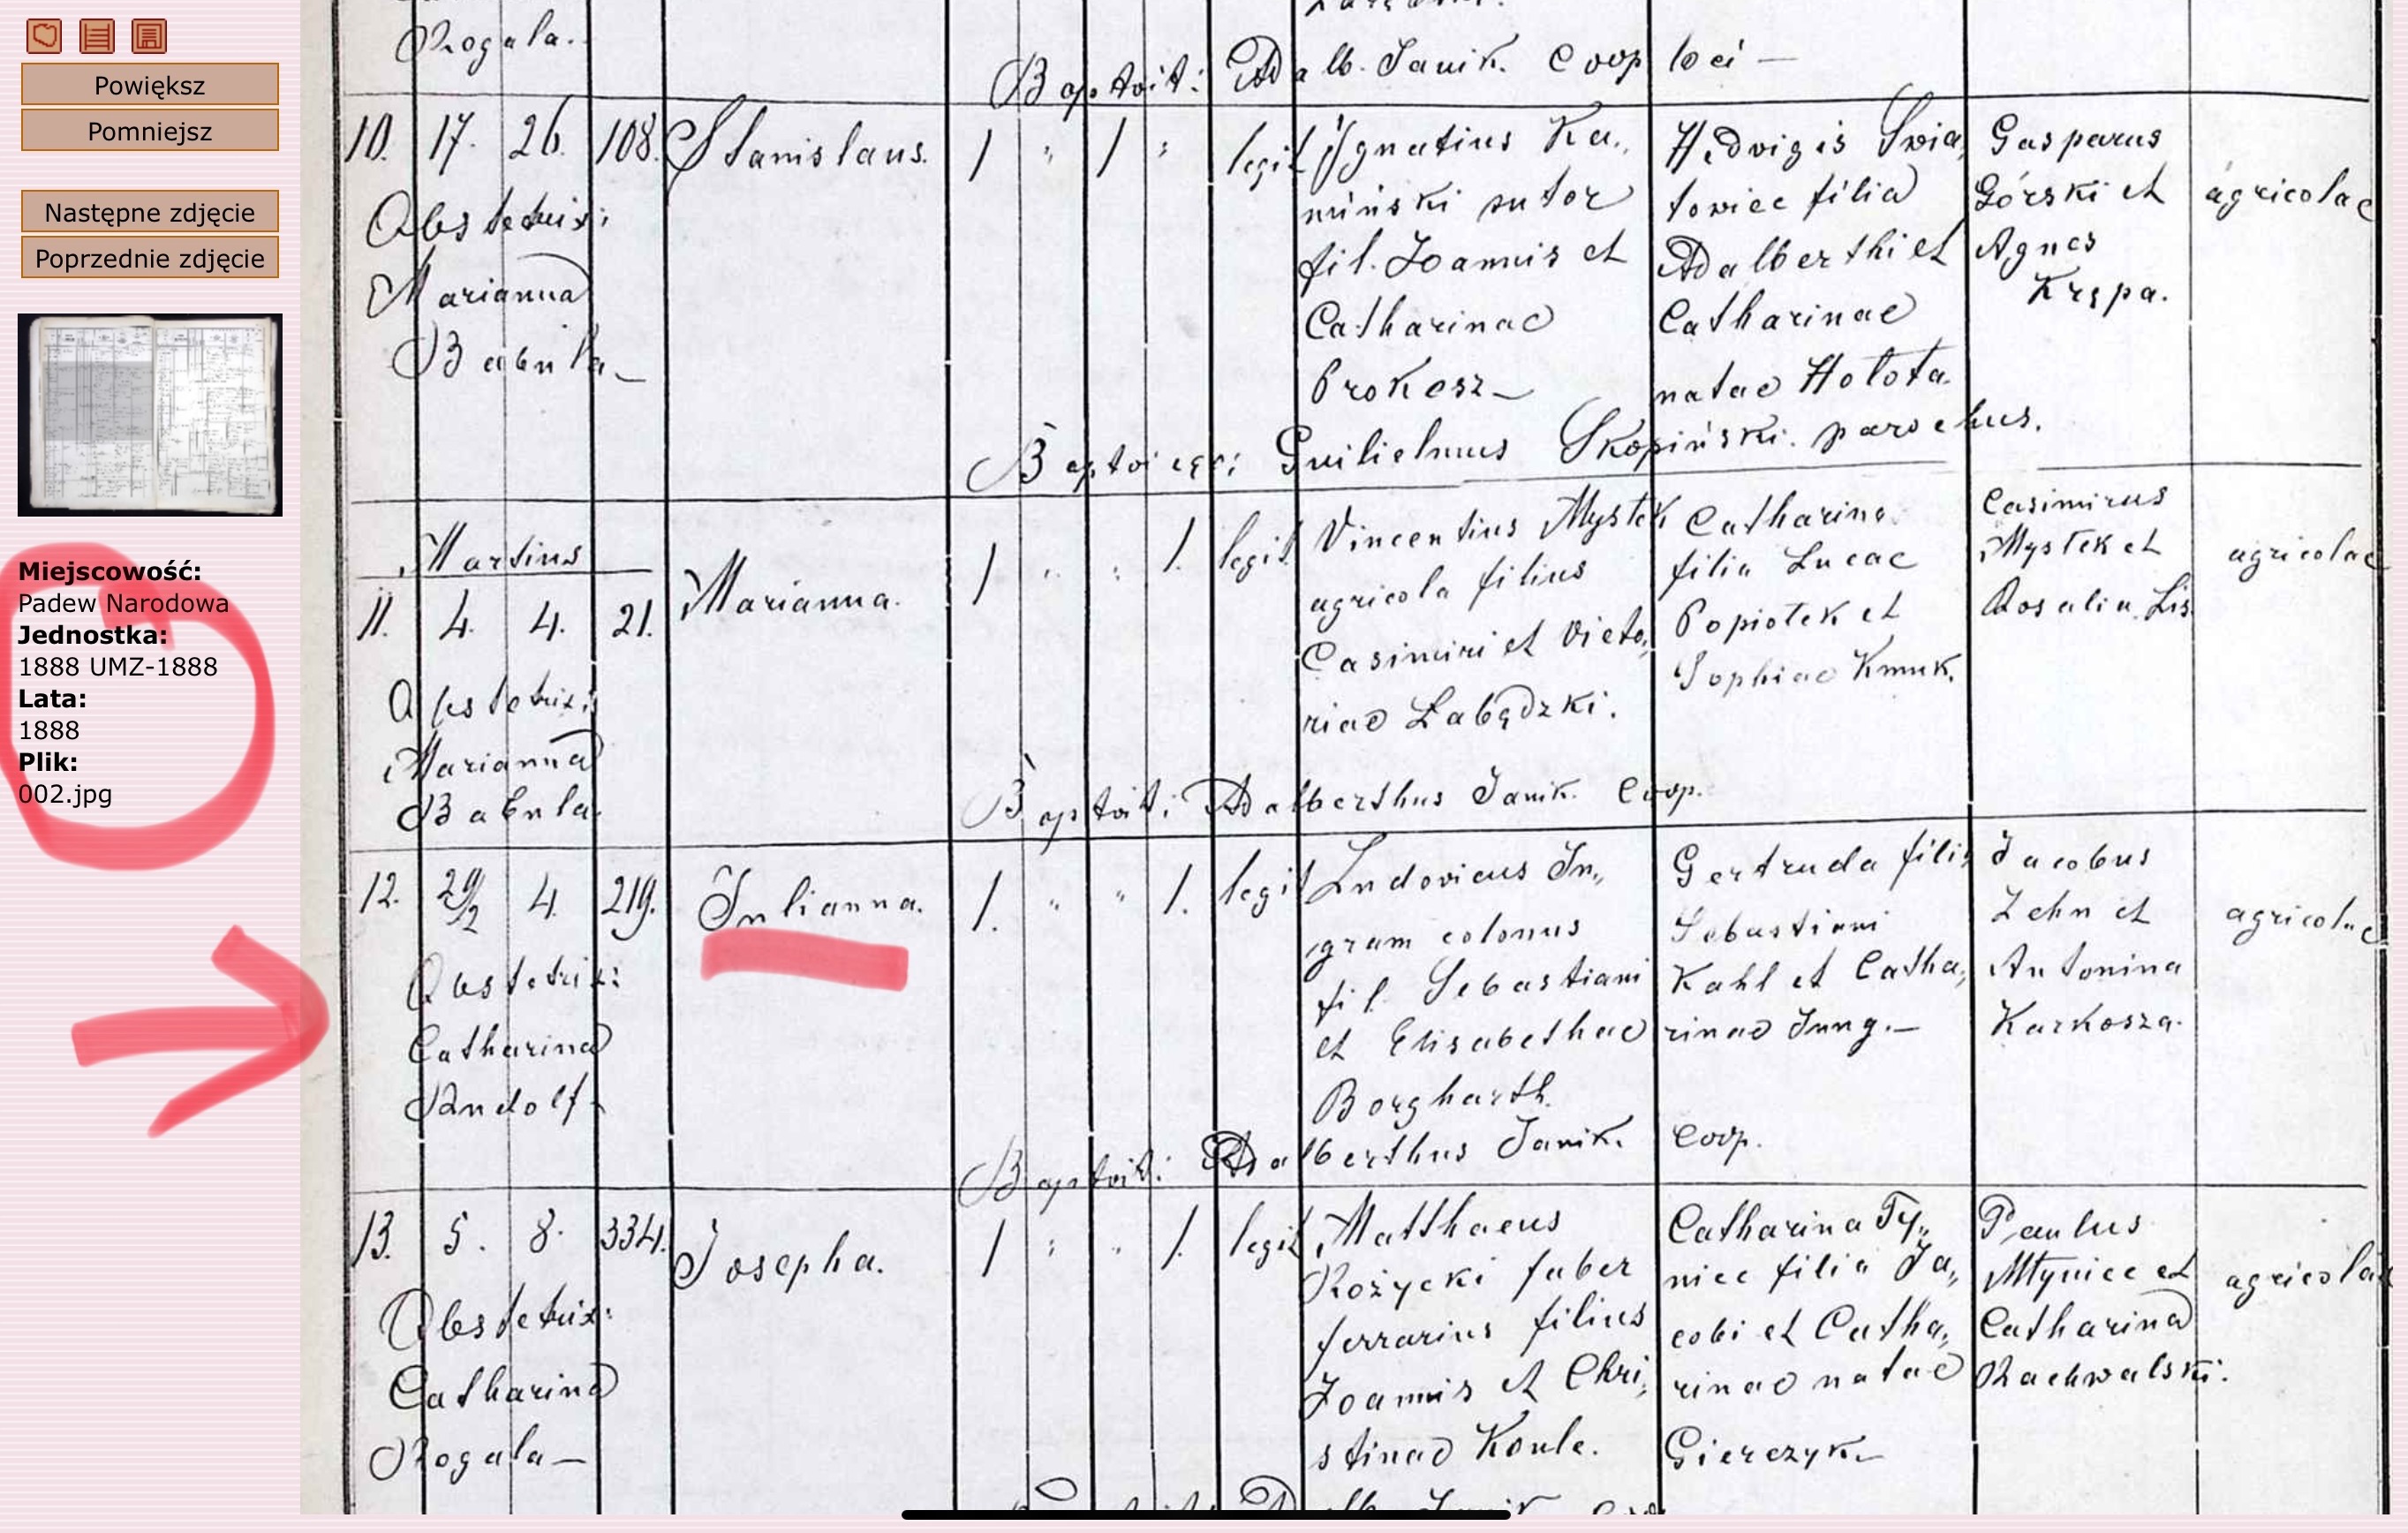 Powiększ
Pomniejsz
Następne zdjęcie
Poprzednie zdjęcie
Miejscowość:
Padew Narodowa
Jednostka:
1888 UMZ-1888
Lata:
1888
Plik:
002.jpg
Rogala.
Adalb. Janik. Coop loci —
10. 17. 26. 108. Stanislaus. 1 " 1 " legit
Obstetrix:
Marianna
Babula
Ignatius Ka„
miński sutor
fil. Joannis et
Catharinae
Prokosz
Hedvigis Świą„
towiec filia
Adalberthi et
Catharinae
natae Hołota.
Gasparus
Górski et
Agnes
Krępa.
agricolae
Guilielmus Skopiński. parochus.
Martius
11. 4. 4. 21. Marianna. 1 " " 1. legit
Obstetrix:
Marianna
Babula.
Vincentius Mystek
agricola filius
Casimiri et Victo„
riae Łabędzki.
Catharina
filia Lucae
Popiołek et
Sophiae Kmuk.
Casimirus
Mystek et
Rosalia Lis
agricolae
Baptvit: Adalberthus Janik. Coop.
12. 29/2 4. 219. Julianna. 1. " " 1. legit
Obstetrix:
Catharina
Rudolf
Ludovicus In„
gram colonus
fil. Sebastiani
et Elisabethae
Borgharth.
Gertruda filia
Sebastiani
Kahl et Catha„
rinae Jung.—
Jacobus
Zehn et
Antonina
Karkosza.
agricolae
Baptvit: Adalberthus Janik. Coop.
13. 5. 8. 334. Josepha. 1 " " 1. legit
Obstetrix:
Catharina
Rogala—
Matthaeus
Rożycki faber
ferrarius filius
Joannis et Chri„
stinae Koule.
Catharina Ty„
niec filia Ja„
cobi et Catha„
rinae natae
Gierczyk.
Paulus
Młyniec et
Catharina
Rachwalski.
agricolae